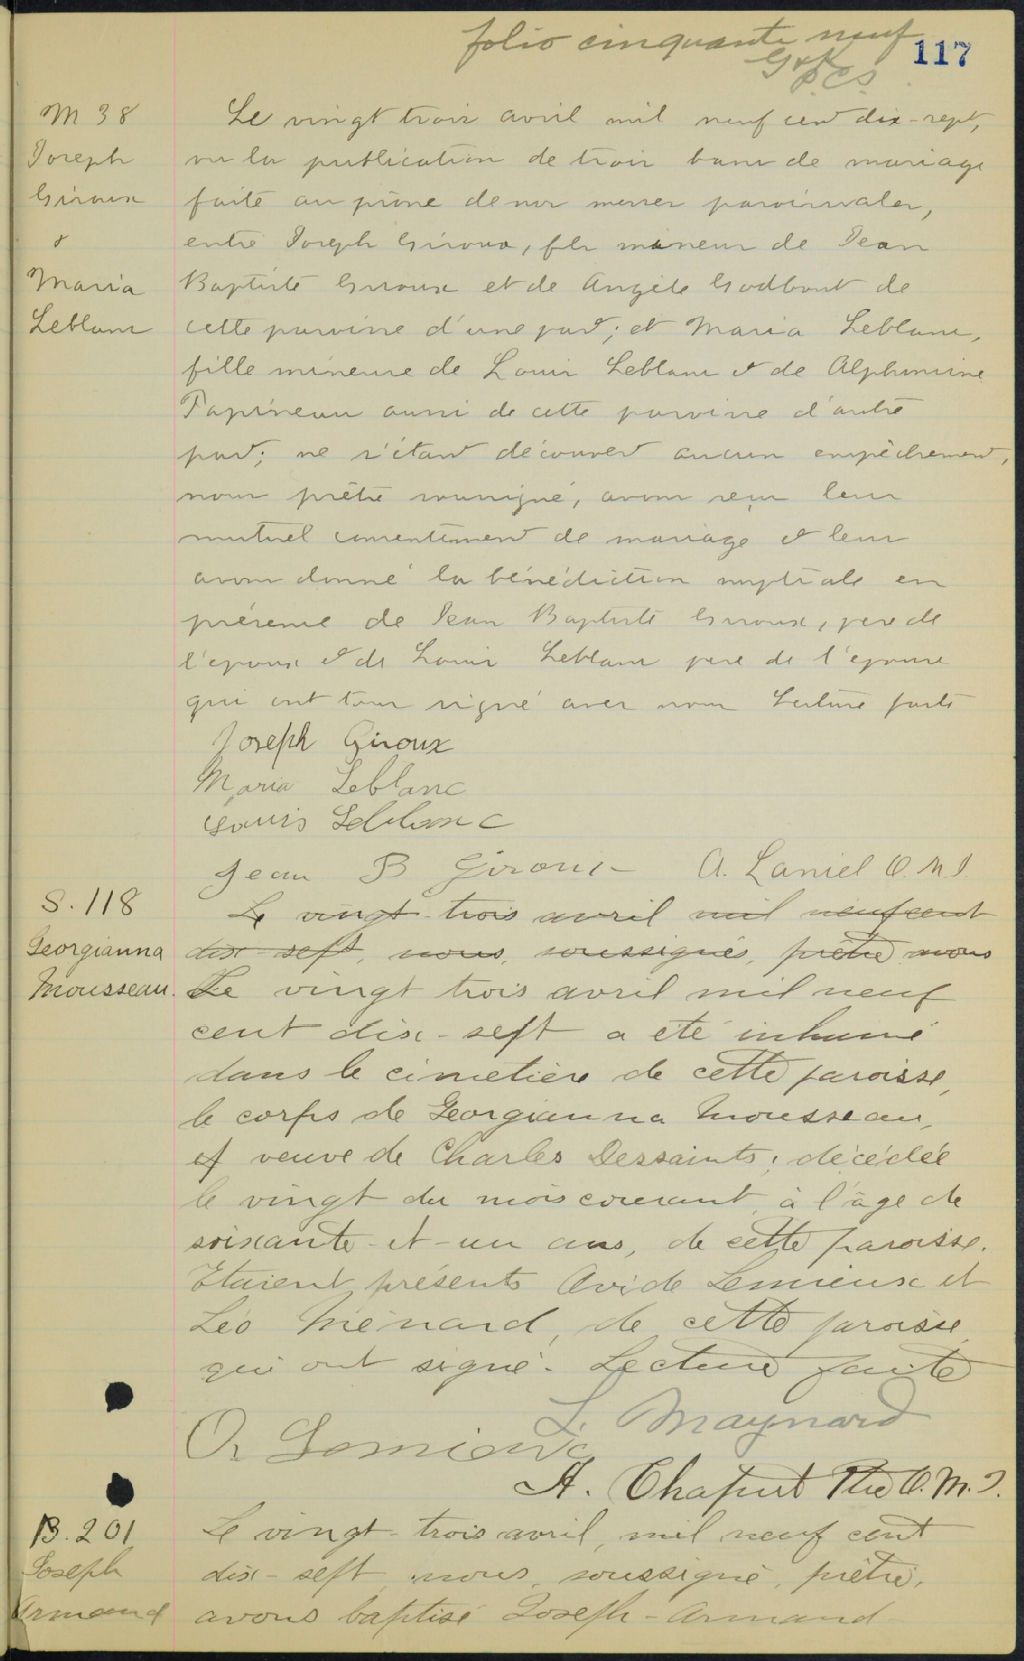 folio cinquante neuf
117
G & K
P.C.S.
M 38
Joseph
Giroux
&
Maria
Leblanc
Le vingt trois avril mil neuf cent dix-sept,
vu la publication de trois bans de mariage
faite au prône de nos messes paroissiales,
entre Joseph Giroux, fils mineur de Jean
Baptiste Giroux et de Angèle Godbout de
cette paroisse d'une part; et Maria Leblanc,
fille mineure de Louis Leblanc & de Alphonsine
Papineau aussi de cette paroisse d'autre
part; ne s'étant découvert aucun empêchement,
nous prêtre soussigné, avons reçu leur
mutuel consentement de mariage & leur
avons donné la bénédiction nuptiale en
présence de Jean Baptiste Giroux, père de
l'époux & de Louis Leblanc père de l'épouse
qui ont tous signé avec nous Lecture faite
Joseph Giroux
Maria Leblanc
Louis Leblanc
Jean B Giroux A. Laniel O.M.I.
S. 118
Georgianna
Mousseau.
Le vingt-trois avril mil neuf cent
dix-sept, nous, soussignés, prêtre nous
Le vingt trois avril mil neuf
cent dix-sept a été inhumé
dans le cimetière de cette paroisse,
le corps de Georgianna Mousseau,
veuve de Charles Dessaints; décédée
le vingt du mois courant, à l'âge de
soixante-et-un ans, de cette paroisse.
Etaient présents Avide Lemieux et
Léo Ménard, de cette paroisse
qui ont signé. Lecture faite
L. Maynard
O. Lemieux
A. Chaput Ptre O.M.I.
B. 201
Joseph
Armand
Le vingt-trois avril, mil neuf cent
dix-sept, nous, soussigné, prêtre,
avons baptisé Joseph-Armand